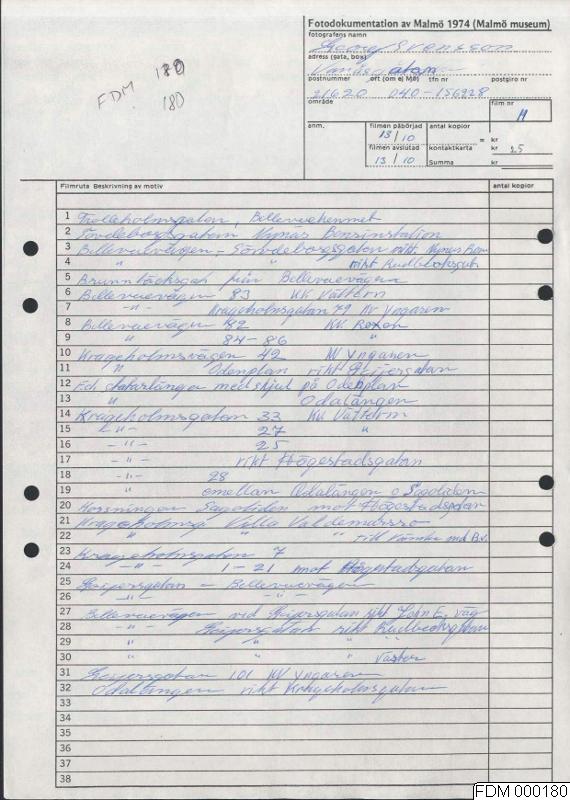 Fotodokumentation av Malmö 1974 (Malmö museum)
fotografens namn
Georg Svensson
adress (gata, box)
postnummer ort (om ej Mö) tfn nr postgiro nr
21620 040-156928
område film nr
H
anm. filmen påbörjad antal kopior
13/10 = kr
filmen avslutad kontaktkarta kr 25
13/10 Summa kr
FDM 180
180
Filmruta Beskrivning av motiv antal kopior
1 Trolleholmsgatan, Bellevuehemmet
2 Sövdeborgsgatan Nynäs Bensinstation
3 Bellevuevägen - Sövdeborgsgatan rikt. Nynäs Ben
4 " " rikt Rudbecksgat
5 Brunnbäcksgat från Bellevuevägen
6 Bellevuevägen 83 KV Vättern
7 -"- Krageholmsgatan 79 Kv Yngaren
8 Bellevuevägen 82 KV Roxen
9 " 84-86 "
10 Krageholmsvägen 42 KV Yngaren
11 " Odenplan rikt Geijersgatan
12 med skjul på Odenplan
13 " Odalängen
14 Krageholmsgatan 33 KV Vättern
15 -"- 27 "
16 -"- 25
17 -"- rikt Högestadsgatan
18 -"- 28
19 " emellan Odalängen o Sagoliden
20 Korsningen Sagoliden mot Högestadsgatan
21 Krageholmsg Villa Valdemarsro
22 " " " till vänster med B.v.
23 Krageholmsgatan 7
24 -"- 1-21 mot Högestadsgatan
25 Geijersgatan - Bellevuevägen
26 -"- -"-
27 Bellevuevägen vid Geijersgatan rikt John E. väg
28 -"- Geijersgatan rikt Rudbecksgatan
29 " " " "
30 " " " Väster
31 Geijersgatan 101 KV Yngaren
32 Odalängen rikt Krageholmsgatan
33
34
35
36
37
38
FDM 000180